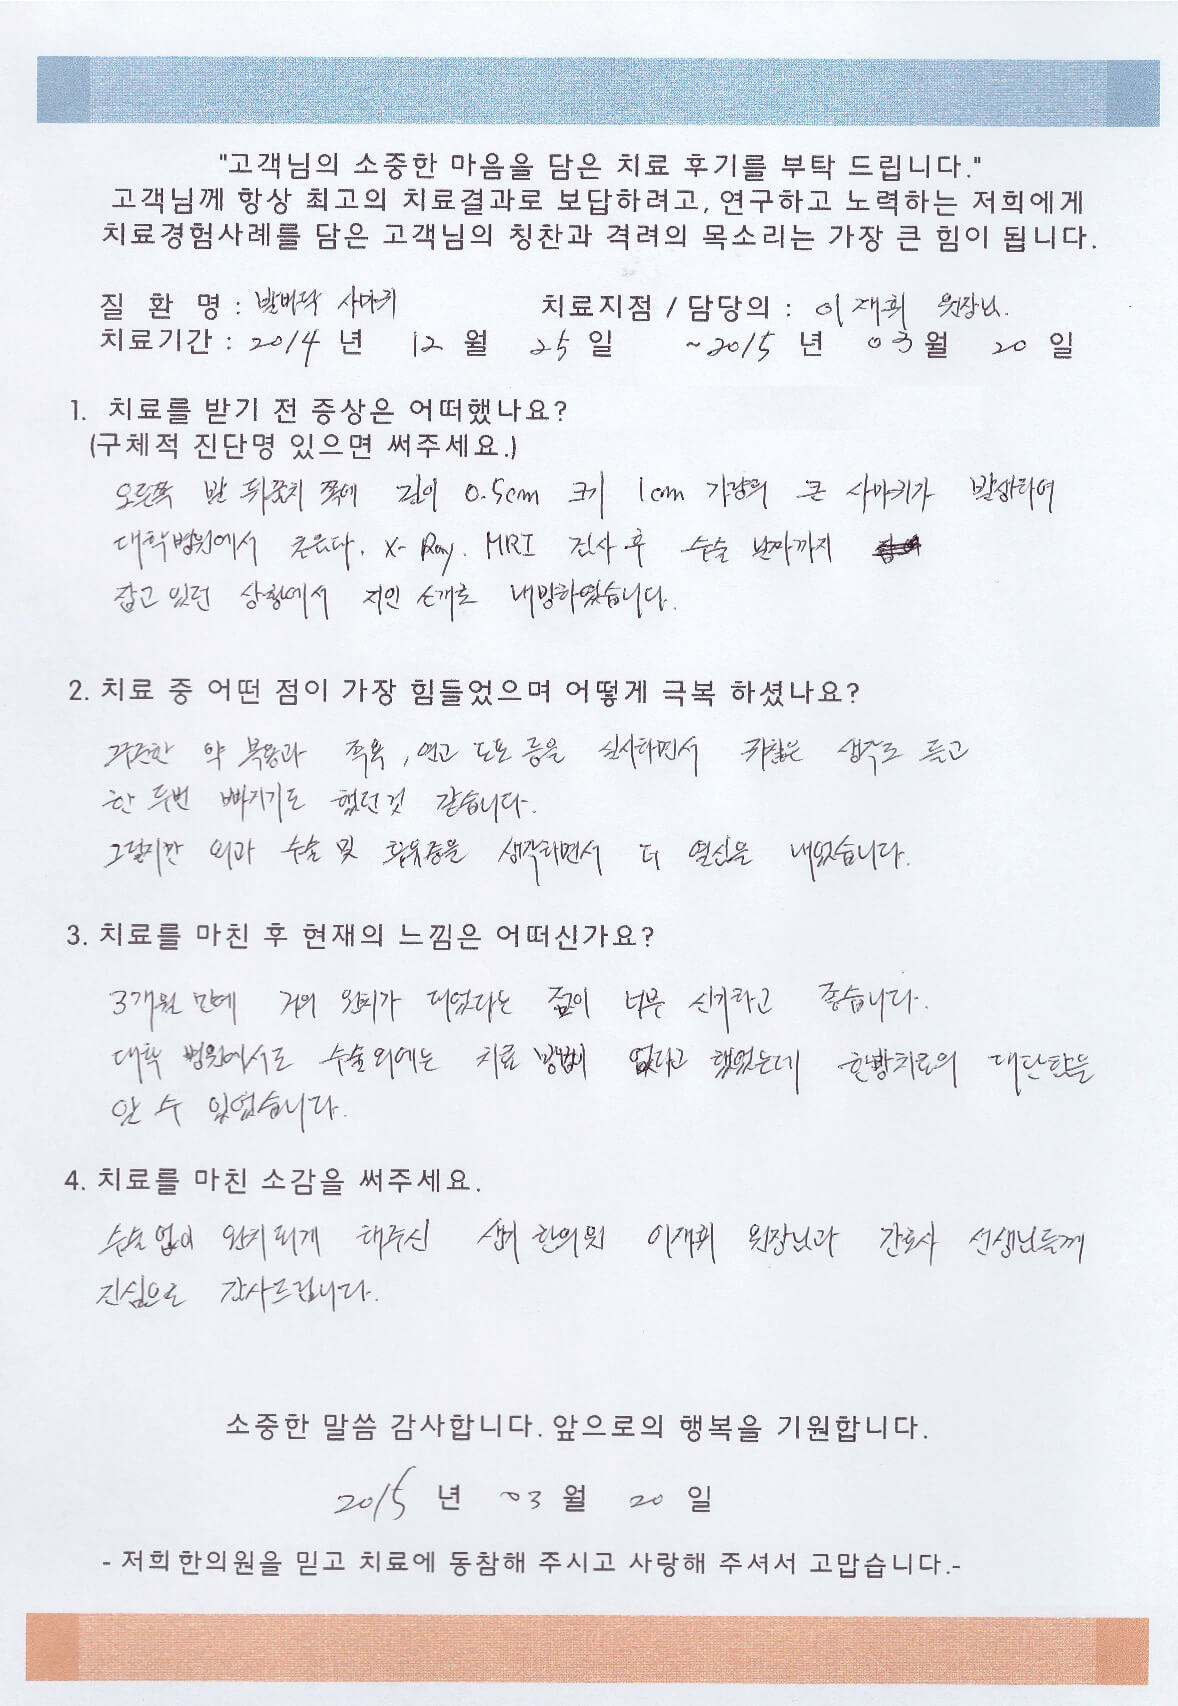 "고객님의 소중한 마음을 담은 치료 후기를 부탁 드립니다."
고객님께 항상 최고의 치료결과로 보답하려고, 연구하고 노력하는 저희에게
치료경험사례를 담은 고객님의 칭찬과 격려의 목소리는 가장 큰 힘이 됩니다.
질 환 명 : 발바닥 사마귀 치료지점 / 담당의 : 이재휘 원장님.
치료기간 : 2014 년 12 월 25 일 ~2015 년 03 월 20 일
1. 치료를 받기 전 증상은 어떠했나요?
(구체적 진단명 있으면 써주세요.)
오른쪽 발 뒤꿈치 쪽에 깊이 0.5cm 크기 1cm 가량의 큰 사마귀가 발생하여
대학병원에서 X-Ray. MRI 검사 후 수술 날짜까지
잡고 있던 상황에서 지인 소개로 내방하였습니다.
2. 치료 중 어떤 점이 가장 힘들었으며 어떻게 극복 하셨나요?
꾸준한 약 복용과 족욕, 연고 도포 등을 실시하면서 귀찮은 생각도 들고
한 두번 빠지기도 했던것 같습니다.
그렇지만 외과 수술 및 후유증을 생각하면서 더 열심을 내었습니다.
3. 치료를 마친 후 현재의 느낌은 어떠신가요?
3개월 만에 거의 완치가 되었다는 점이 너무 신기하고 좋습니다.
대학 병원에서도 수술외에는 치료 방법이 없다고 했었는데 한방치료의 대단함을
알 수 있었습니다.
4. 치료를 마친 소감을 써주세요.
수술 없이 완치되게 해주신 생기 한의원 이재휘 원장님과 간호사 선생님들께
진심으로 감사드립니다.
소중한 말씀 감사합니다. 앞으로의 행복을 기원합니다.
2015 년 03 월 20 일
- 저희한의원을 믿고 치료에 동참해 주시고 사랑해 주셔서 고맙습니다.-